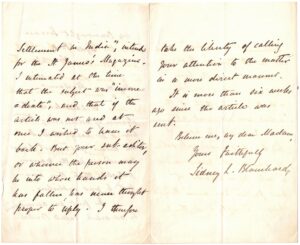 Settlement in India", intended
for the St James's Magazine.
I intimated at the time
that the subject was "immedi-
ate", and that if the
article was not used at
once I wished to have it
back. But your sub-editor,
or whoever the person may
be into whose hands it
has fallen has never thought
proper to reply. I therefore
take the liberty of calling
your attention to the matter
in a more direct manner.
It is more than six weeks
ago since the article was
sent.
Believe me, my dear Madam,
Yours faithfully
Sidney L. Blanchard